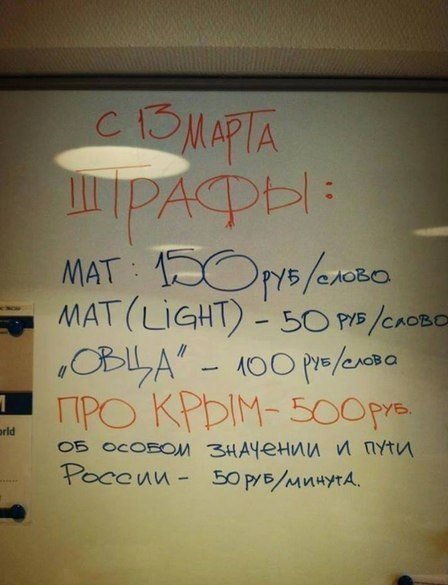 С 13 МАРТА
ШТРАФЫ:
МАТ: 150 РУБ/СЛОВО.
МАТ (LIGHT) - 50 РУБ/СЛОВО
„ОВЦА" - 100 РУБ/СЛОВО
ПРО КРЫМ - 500 РУБ.
ОБ ОСОБОМ ЗНАЧЕНИИ И ПУТИ
РОССИИ - 50 РУБ/МИНУТА.